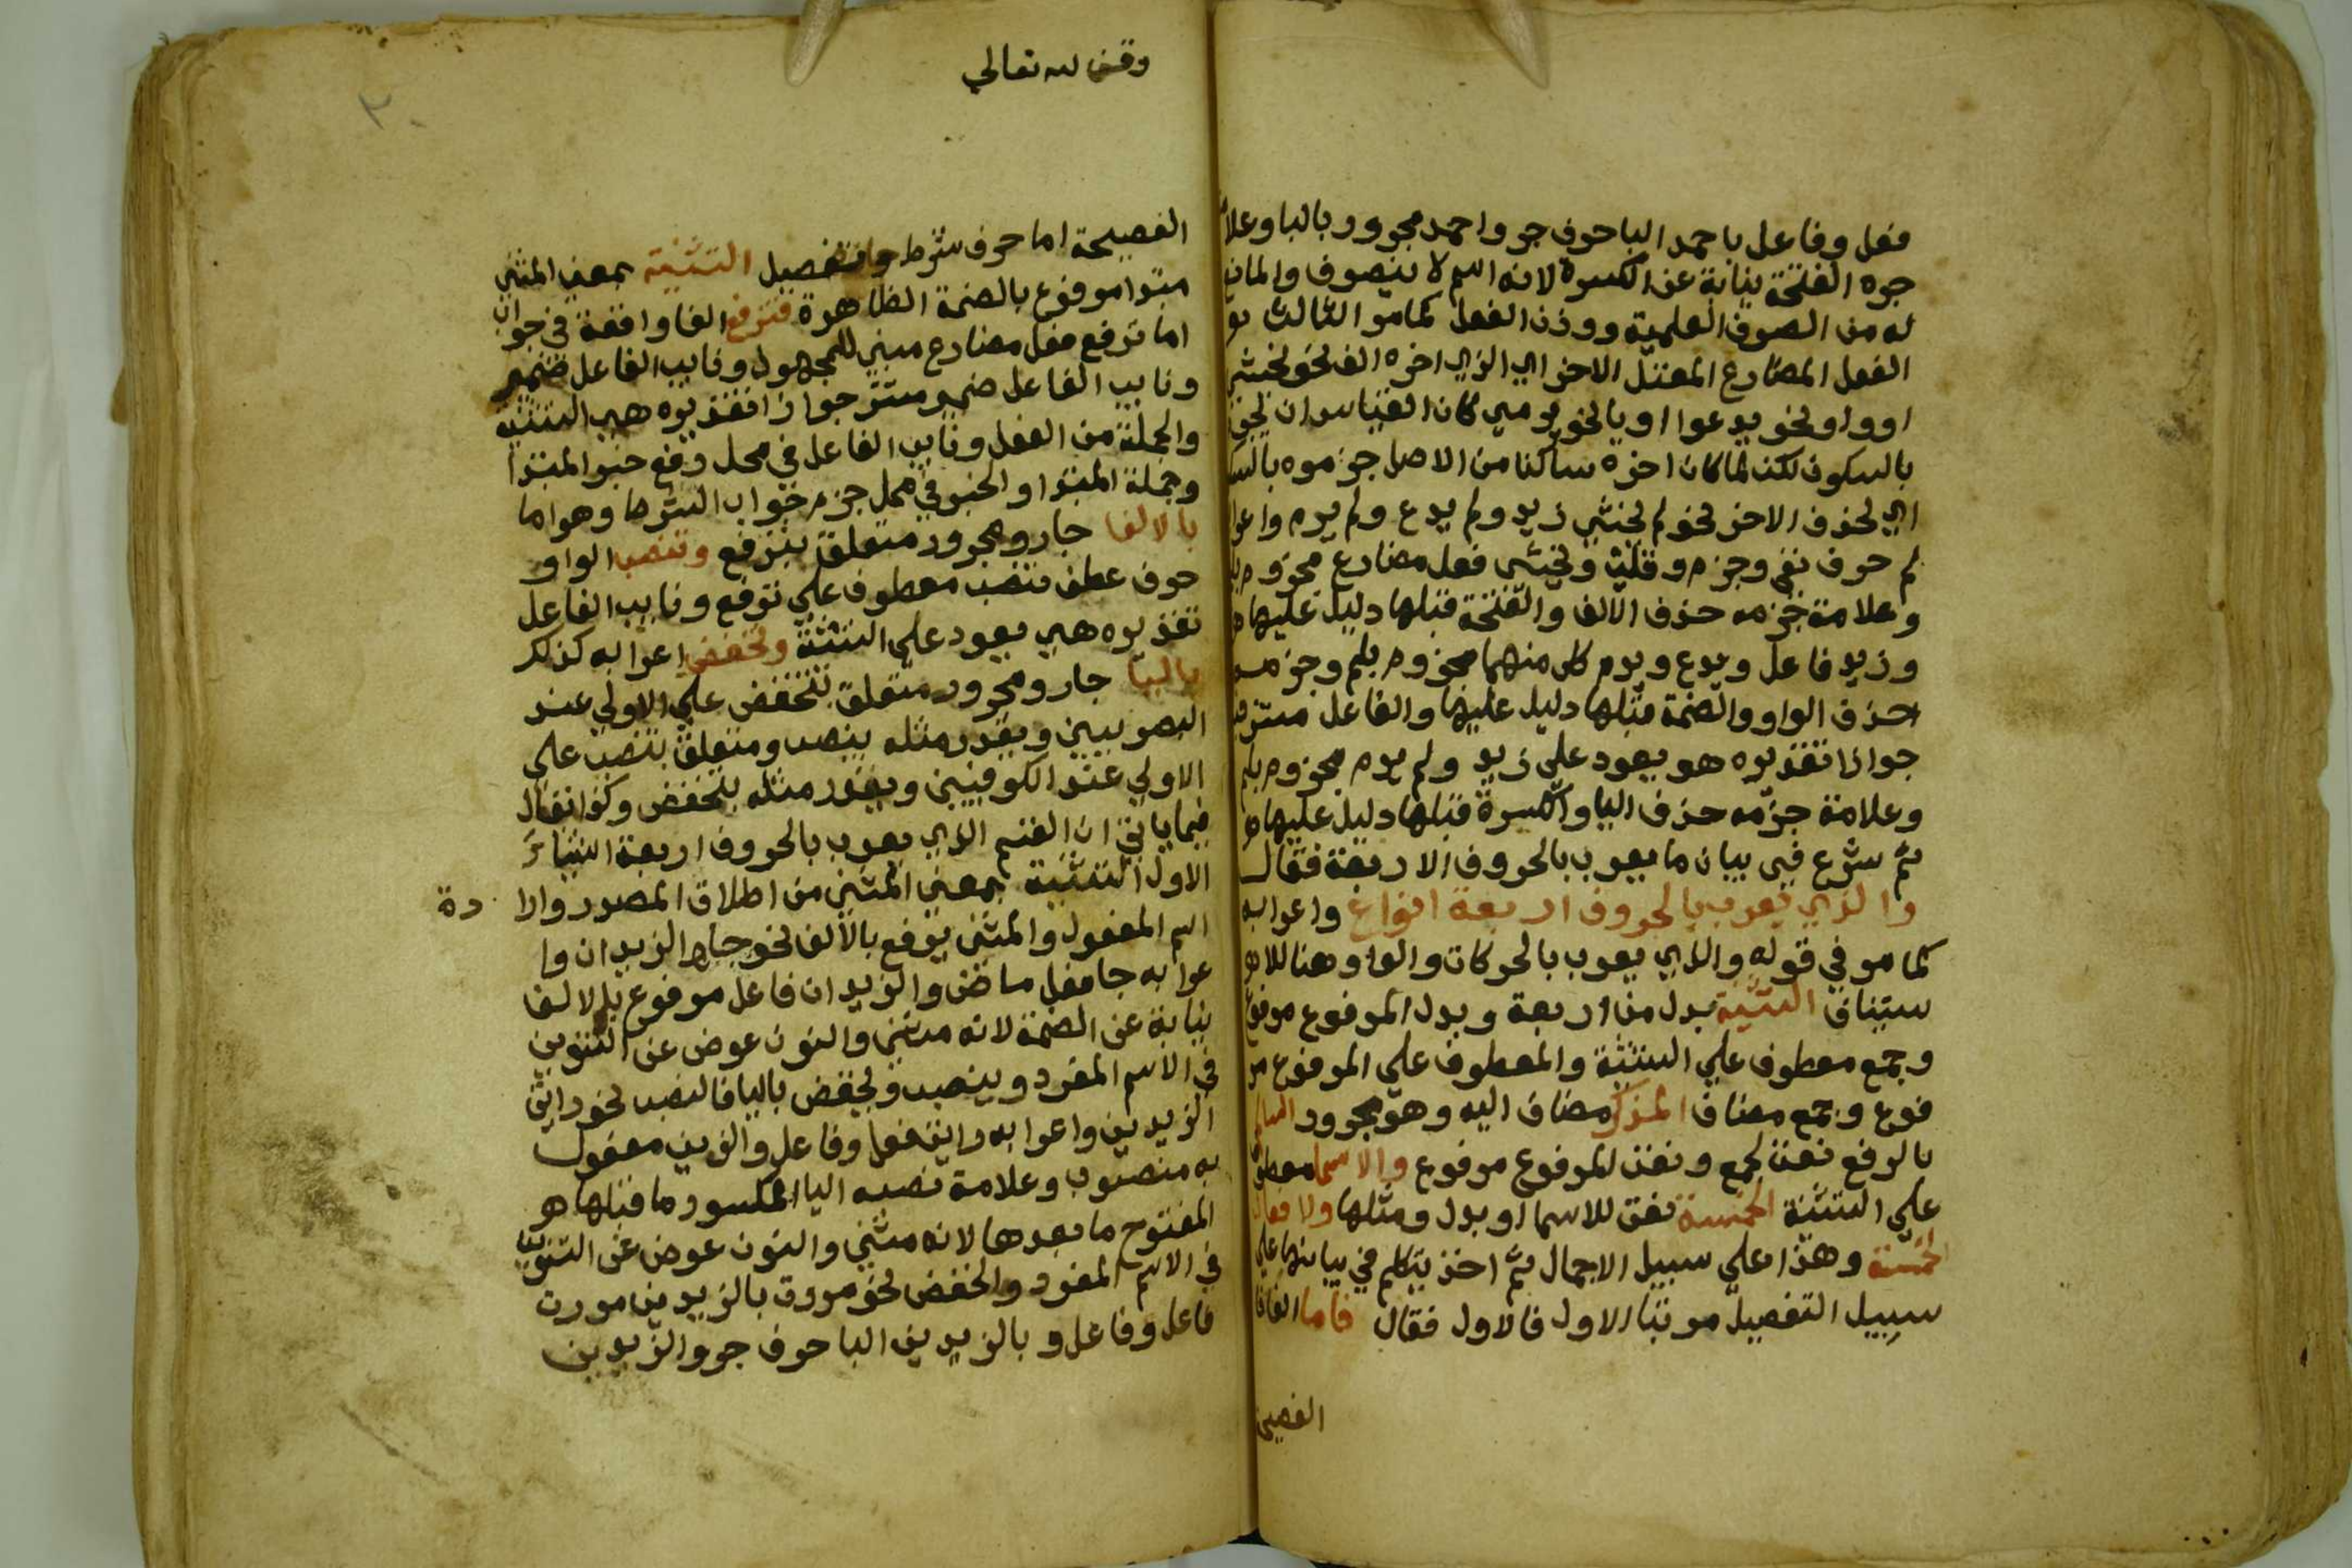 فعل وفاعل باحمد البا حرف جر واحمد مجرور بالبا وعلا
جره الفتحة نيابة عن الكسرة لانه اسم لا ينصرف والمانع
له من الصرف العلمية ووزن الفعل كما مر الثالث
الفعل المضارع المعتل الاخر اي الذي اخره الف نحو يخشى
او واو نحو يدعوا او يا نحو يرمي كان القياس ان يجزم
بالسكون لكن لما كان اخره ساكنا من الاصل جزموه
اي بحذف الاخر نحو لم يخش زيد ولم يدع ولم يرم واعرا
لم حرف نفي وجزم وقلب ويخش فعل مضارع مجزوم
وعلامة جزمه حذف الالف والفتحة قبلها دليل عليها
وزيد فاعل ويدع ويرم كل منهما مجزوم بلم وجزمه
حذف الواو والضمة قبلها دليل عليها والفاعل مستتر
جوازا تقديره هو يعود على زيد ولم يرم مجزوم بلم
وعلامة جزمه حذف اليا والكسرة قبلها دليل عليها
ثم شرع في بيان ما يعرب بالحروف الاربعة فقال
والذي يعرب بالحروف اربعة انواع واعرابه
كما مر في قوله والذي يعرب بالحركات والواو هنا للا
ستيناف التثنية بدل من اربعة وبدل المرفوع مرفوع
وجمع معطوف علي التثنية والمعطوف علي المرفوع مر
فوع وجمع مضاف المذكر مضاف اليه وهو مجرور السالم
بالرفع نعت لجمع ونعت المرفوع مرفوع والاسما معطوف
علي التثنية الخمسة نعت للاسما او بدل ومثلها والافعال
الخمسة وهذا علي سبيل الاجمال ثم اخذ يتكلم في بيانها علي
سبيل التفصيل مرتبا الاول فالاول فقال فاما الفا فا
الفصيحة
وقف لله تعالي
الفصيحة اما حرف شرط وتفصيل التثنية بمعني المثني
مبتدا مرفوع بالضمة الظاهرة فترفع الفا واقعة في جواب
اما ترفع فعل مضارع مبني للمجهول ونايب الفاعل ضمير
ونايب الفاعل ضمير مستتر جوازا تقديره هي التثنية
والجملة من الفعل ونايب الفاعل في محل رفع خبر المبتدا
وجملة المبتدا والخبر في محل جزم جواب الشرط وهو اما
بالالف جار ومجرور متعلق بترفع وتنصب الواو
حرف عطف تنصب معطوف علي ترفع ونايب الفاعل
تقديره هي يعود علي التثنية وتخفض اعرابه كذلك
باليا جار ومجرور متعلق بتخفض علي الاولي عند
البصريين ويقدر مثله بينصب ومتعلق بتنصب علي
الاولي عند الكوفيين ويقدر مثله بتخفض وكذا نقال
فيما ياتي ان القسم الذي يعرب بالحروف اربعة اشيا
الاول التثنية بمعني المثني من اطلاق المصدر وارا دة
اسم المفعول والمثني يرفع بالالف نحو جا الزيدان وا
عرابه جا فعل ماض والزيدان فاعل مرفوع بالالف
نيابة عن الضمة لانه مثني والنون عوض عن التنوين
في الاسم المفرد وينصب ويخفض باليا فالنصب نحو رايت
الزيدين واعرابه رايت فعل وفاعل والزيدين مفعول
به منصوب وعلامة نصبه اليا المكسور ما قبلها
المفتوح ما بعدها لانه مثني والنون عوض عن التنوين
في الاسم المفرد والخفض نحو مررت بالزيدين مررت
فاعل وفاعل وبالزيدين البا حرف جر والزيدين